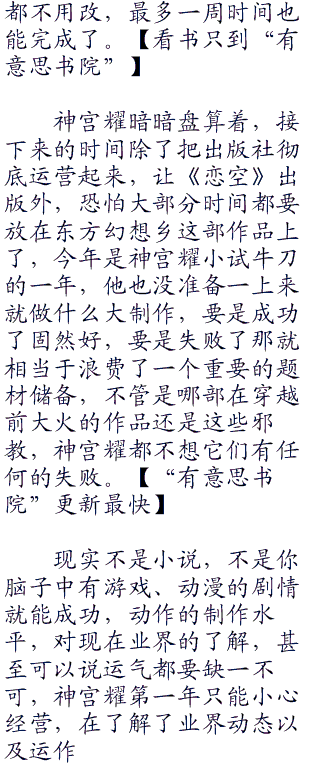 都不用改，最多一周时间也
能完成了。【看书只到“有
意思书院”】
神宫耀暗暗盘算着，接
下来的时间除了把出版社彻
底运营起来，让《恋空》出
版外，恐怕大部分时间都要
放在东方幻想乡这部作品上
了，今年是神宫耀小试牛刀
的一年，他也没准备一上来
就做什么大制作，要是成功
了固然好，要是失败了那就
相当于浪费了一个重要的题
材储备，不管是哪部在穿越
前大火的作品还是这些邪
教，神宫耀都不想它们有任
何的失败。【“有意思书
院”更新最快】
现实不是小说，不是你
脑子中有游戏、动漫的剧情
就能成功，动作的制作水
平，对现在业界的了解，甚
至可以说运气都要缺一不
可，神宫耀第一年只能小心
经营，在了解了业界动态以
及运作